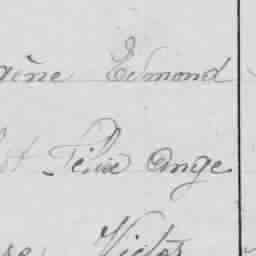 gène Edmond
t Félix Ange
se Victor